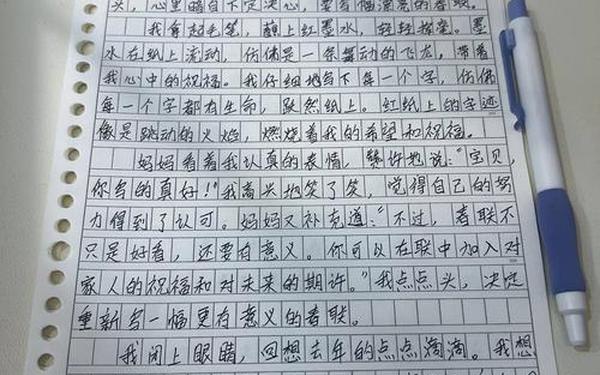 头，心里暗自下定决心，要写幅漂亮的春联。
我拿起毛笔，蘸上红墨水，轻轻挥毫。墨
水在纸上流动，仿佛是一条舞动的飞龙，带着
我心中的祝福。我仔细地写下每一个字，仿佛
每一个字都有生命，跃然纸上。红纸上的字迹
像是跳动的火焰，燃烧着我的希望和祝福。
妈妈看着我认真的表情，赞许地说："宝贝，
你写的真好！"我高兴地笑了笑，觉得自己的努
力得到了认可。妈妈又补充道："不过，春联不
只是好看，还要有意义。你可以在联中加入对
家人的祝福和对未来的期许。"我点点头，决定
重新写一幅更有意义的春联。
我闭上眼睛，回想去年的点点滴滴。我想